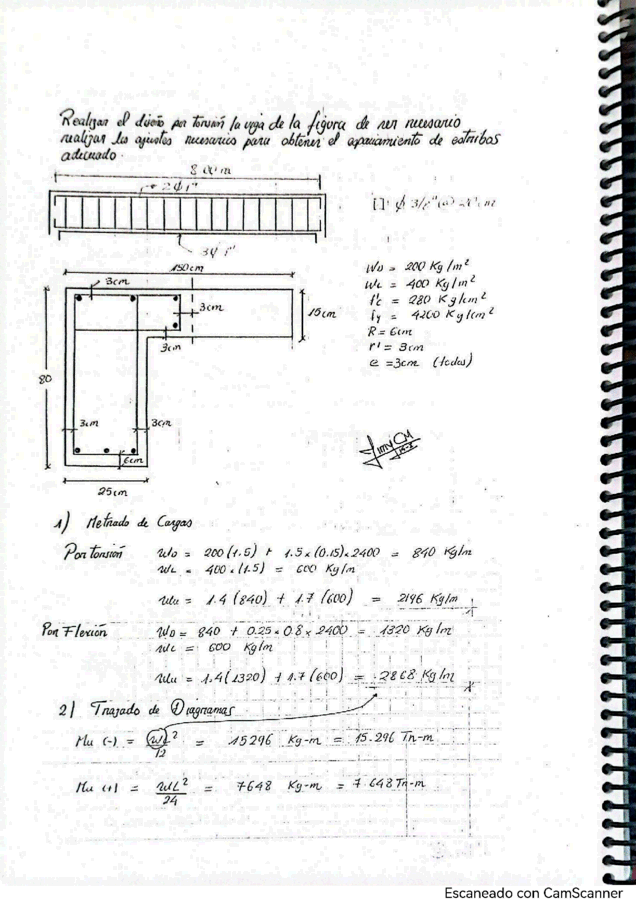 Realizar el diseño por torsión la viga de la figura de ser necesario
realizar los ajustes necesarios para obtener el espaciamiento de estribos
adecuado.
8.00 m
2 φ 1"
[] φ 3/8" @ 20 cm
3φ 1"
150cm
3cm
3cm
15cm
3cm
80
3cm
3cm
6cm
25cm
WD = 200 Kg/m²
WL = 400 Kg/m²
f'c = 280 Kg/cm²
fy = 4200 Kg/cm²
R = 6cm
r' = 3cm
e = 3cm (todos)
1) Metrado de Cargas
Por torsión WD = 200 (1.5) + 1.5 x (0.15) x 2400 = 840 Kg/m
WL = 400 x (1.5) = 600 Kg/m
Wu = 1.4 (840) + 1.7 (600) = 2196 Kg/m
Por Flexión WD = 840 + 0.25 x 0.8 x 2400 = 1320 Kg/m
WL = 600 Kg/m
Wu = 1.4(1320) + 1.7(600) = 2868 Kg/m
2) Trazado de Diagramas
Mu (-) = WL²/12 = 15296 Kg-m = 15.296 Tn-m
Mu (+) = WL²/24 = 7648 Kg-m = 7.648 Tn-m
Escaneado con CamScanner